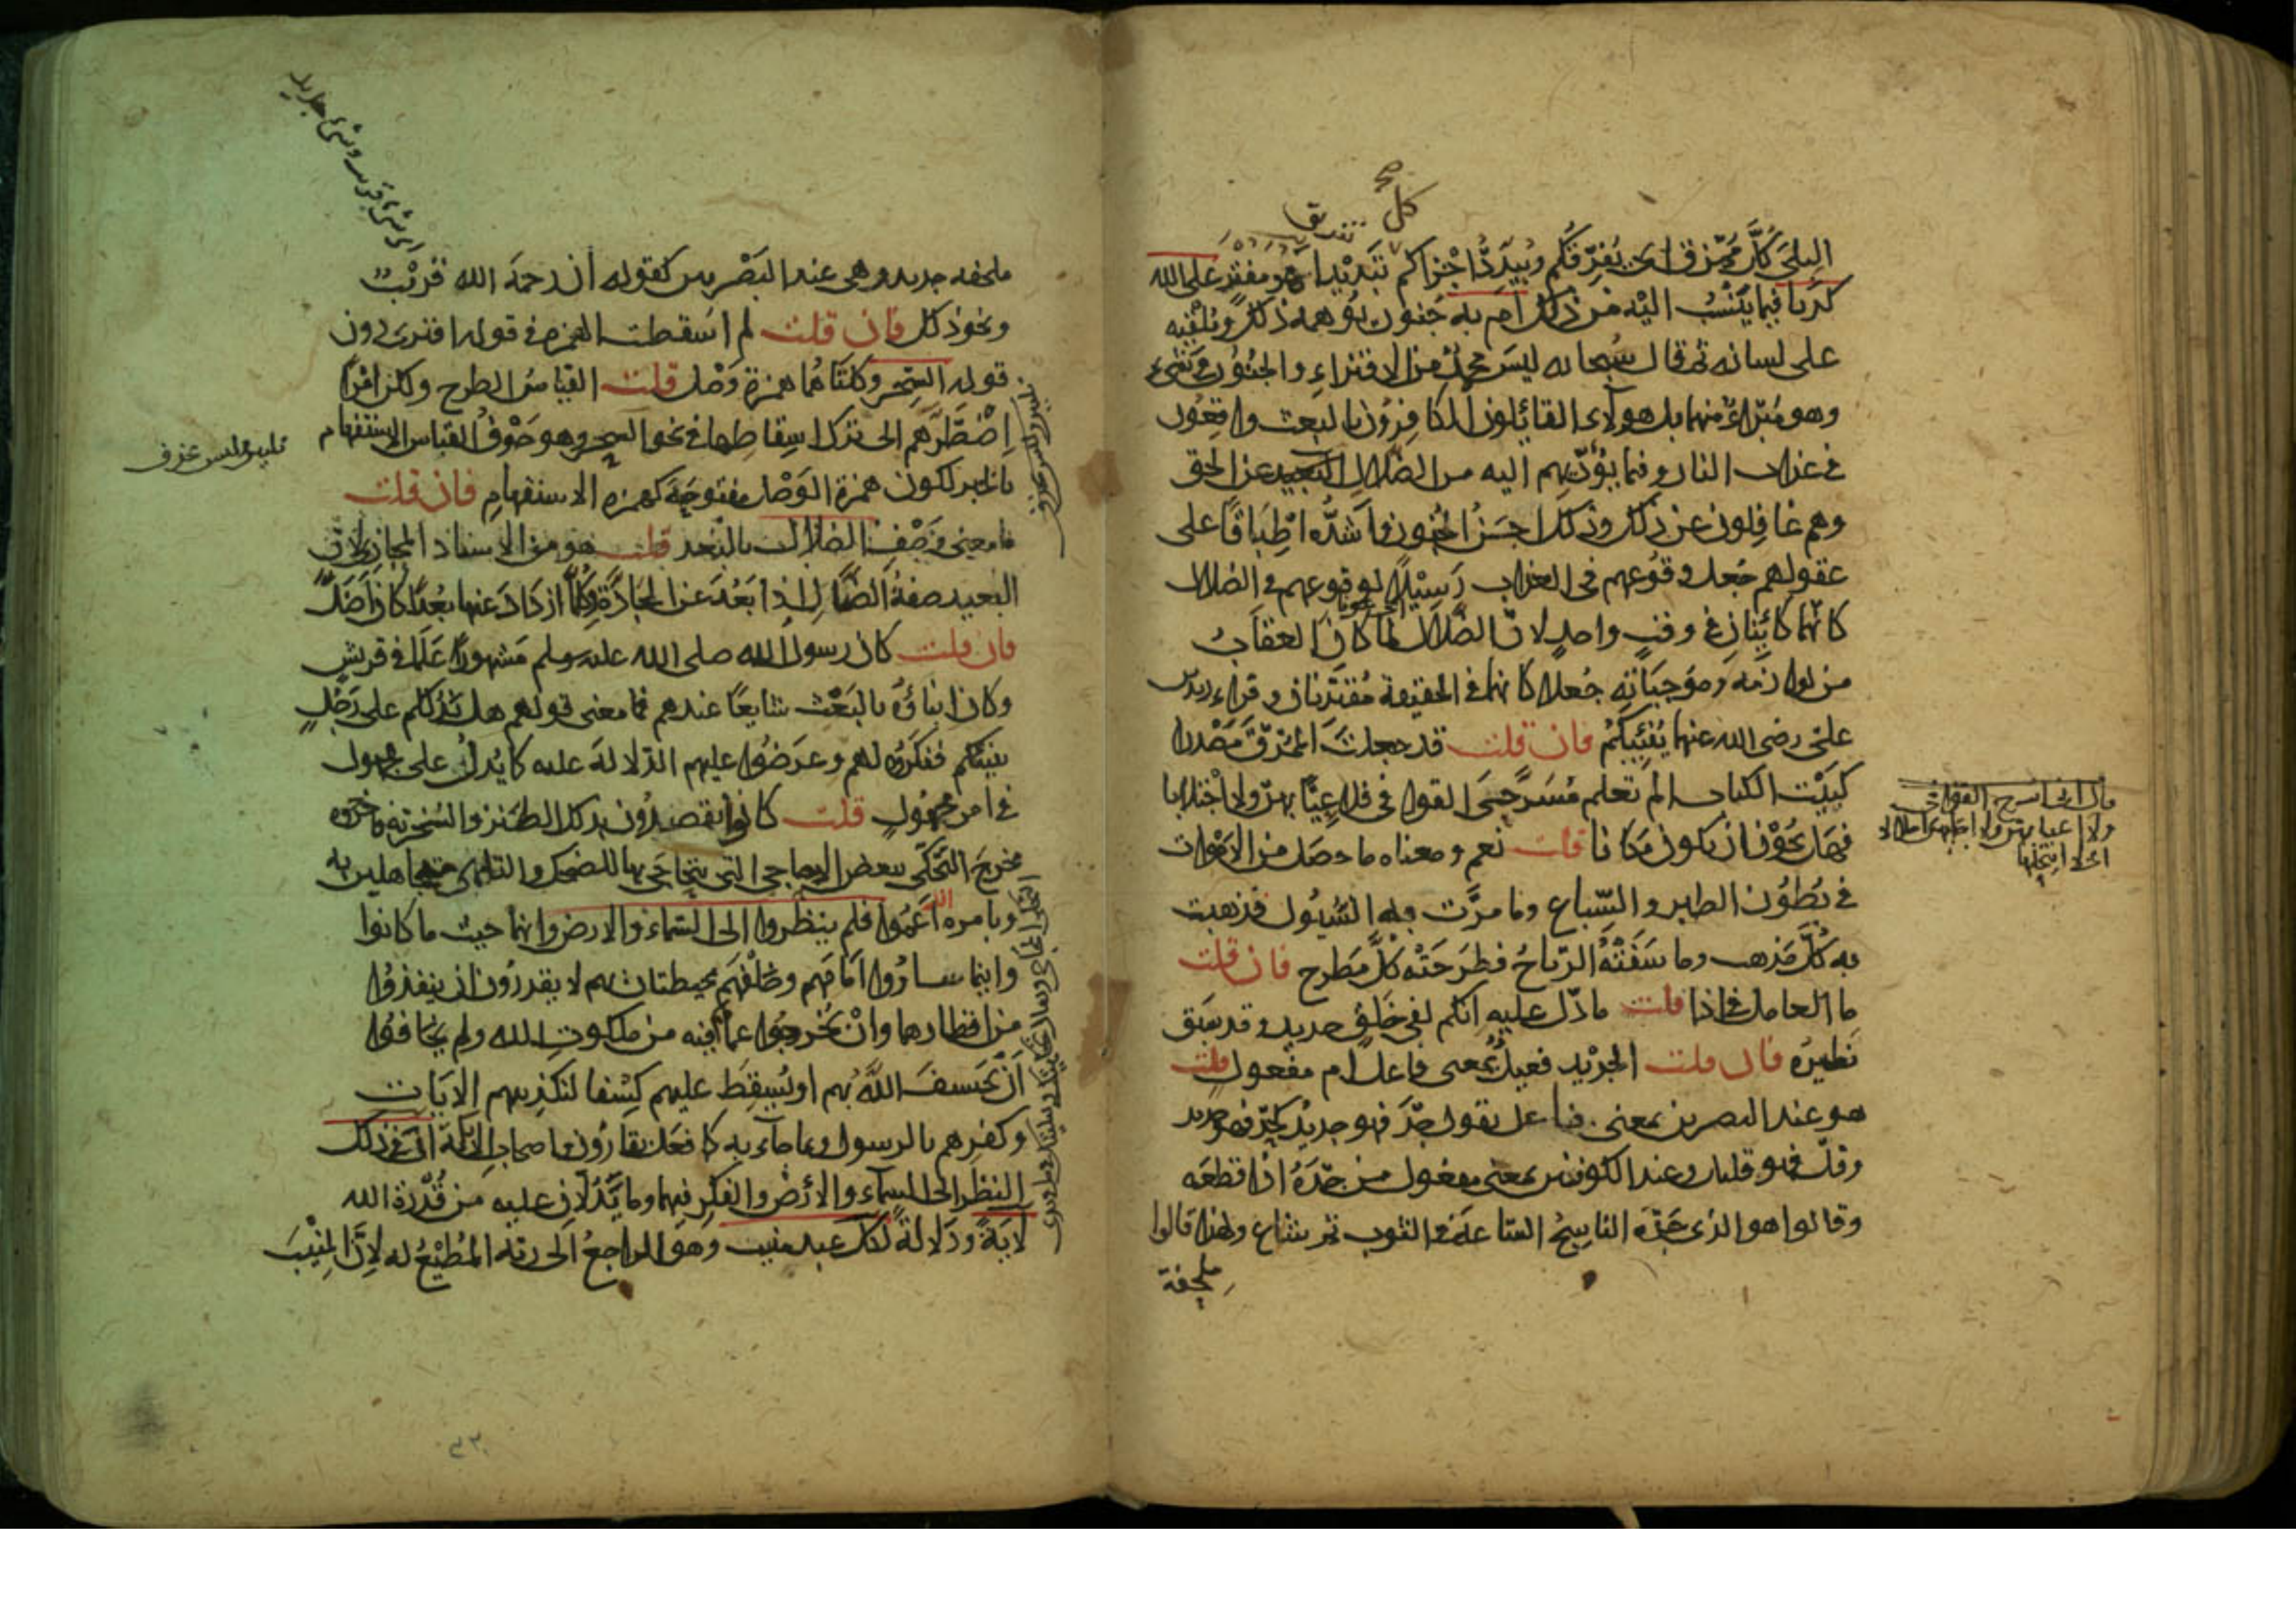 كل تفريق
صح
البلى كل ممزق اى يفرقكم ويبدد اجزاكم تبديدا اهو مفتر على الله
كذبا فيما ينسب اليه من ذلك ام به جنون يوهمه ذلك ويلقيه
على لسانه ثم قال سبحانه ليس محمد من الافتراء والجنون فى شىء
وهو مبرا منهما بل هولاء القائلون الكافرون بالبعث واقعون
فى عذاب النار وفيما يؤديهم اليه من الضلال البعيد عن الحق
وهم غافلون عن ذلك وذلك اجن الجنون واشده اطباقا على
عقولهم جعل وقوعهم فى العذاب رسيلا لوقوعهم فى الضلال
كانهما كائنان فى وقت واحد لان الضلال لما كان العقاب
من لوازمه وموجباته جعلا كانهما فى الحقيقة مقترنان وقراء زيد بن
على رضى الله عنهما ينبيكم فان قلت قد جعلت الممزق مصدرا
كبيت الكتاب الم تعلم مسرحى القوافى فلا عيا بهن ولا اجتلابا
فهل يجوز ان يكون مكانا قلت نعم ومعناه ما حصل من الاموات
فى بطون الطير والسباع وما مرت به السيول فذهبت
به كل مذهب وما سفته الرياح فطرحته كل مطرح فان قلت
ما العامل فى اذا قلت ما دل عليه انكم لفى خلق جديد وقد سبق
نظيره فان قلت الجديد فعيل بمعنى فاعل ام مفعول قلت
هو عند البصريين بمعنى فاعل تقول جد فهو جديد كحد فهو حديد
وقل فهو قليل وعند الكوفيين بمعنى مفعول من جده اذا قطعه
وقالوا هو الذى جده الناسج الساعة فى الثوب ثم شاع ولهذا قالوا
ملحفة
ملحفه جديد وهى عند البصريين كقوله ان رحمة الله قريب
ونحو ذلك فان قلت لم اسقطت الهمزه فى قوله افترى دون
قوله السحر وكلتاهما همزة وصل قلت القياس الطرح ولكن امرا
اضطرهم الى ترك اسقاطها فى نحو السحر وهو خوف القباس الاستفهام
بالخبر لكون همزة الوصل مفتوحة كهمزه الاستفهام فان قلت
ما معنى وصف الضلال بالبعد قلت هو من الاسناد المجازى لان
البعيد صفة الضال اذا بعد عن الجادة وكلما ازداد عنها بعدا كان اضل
فان قلت كان رسول الله صلى الله عليه وسلم مشهورا علما فى قريش
وكان انباؤه بالبعث شايعا عندهم فما معنى قولهم هل ندلكم على رجل
ينبئكم فنكروه لهم وعرضوا عليهم الدلالة عليه كما يدل على مجهول
فى امر مجهول قلت كانوا يقصدون بذلك الطنز والسخرية فاخرجوه
مخرج التحكى ببعض الاحاجى التى يتحاجى بها للضحك والتلهى متجاهلين به
وبامره اعموا فلم ينظروا الى السماء والارض وانهما حيث ما كانوا
واينما ساروا امامهم وخلفهم محيطتان بهم لا يقدرون ان ينفذوا
من اقطارهما وان يخرجوا عما فيه من ملكوت الله ولم يخافوا
ان يخسف الله بهم او يسقط عليهم كسفا لتكذيبهم الايات
وكفرهم بالرسول وبما جاء به كما فعل بقارون واصحاب الايكة ان فى ذلك
النظر الى السماء والارض والفكر فيهما وما يدلان عليه من قدرة الله
لاية ودلالة لكل عبد منيب وهو الراجع الى ربه المطيع له لان المنيب